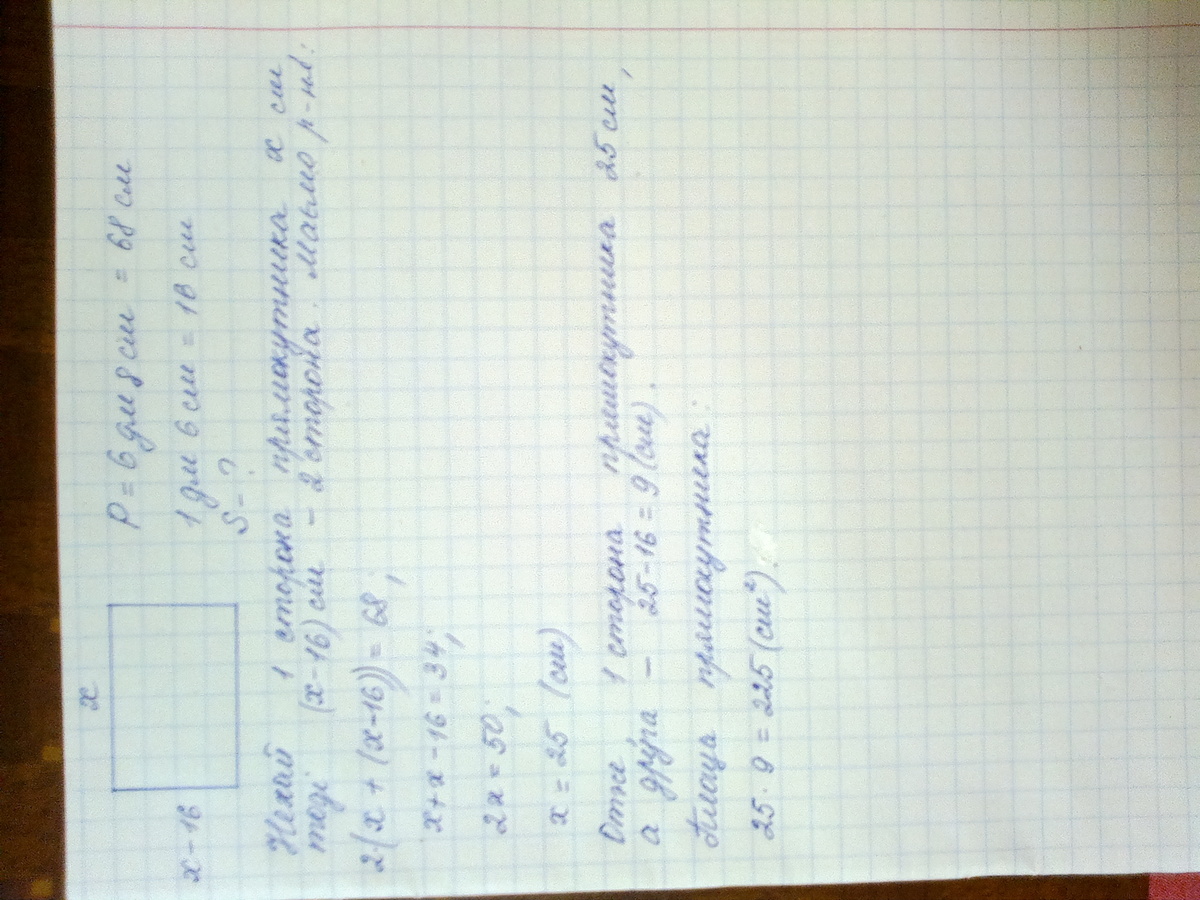 x
x-16
P = 6 дм 8 см = 68 см
1 дм 6 см = 16 см
S - ?
Нехай 1 сторона прямокутника x см
тоді (x-16) см - 2 сторона. Маємо р-ня:
2·(x + (x-16)) = 68;
x+x-16 = 34;
2x = 50;
x = 25 (см)
Отже 1 сторона прямокутника 25 см,
а друга - 25-16 = 9 (см).
Площа прямокутника:
25 · 9 = 225 (см²).